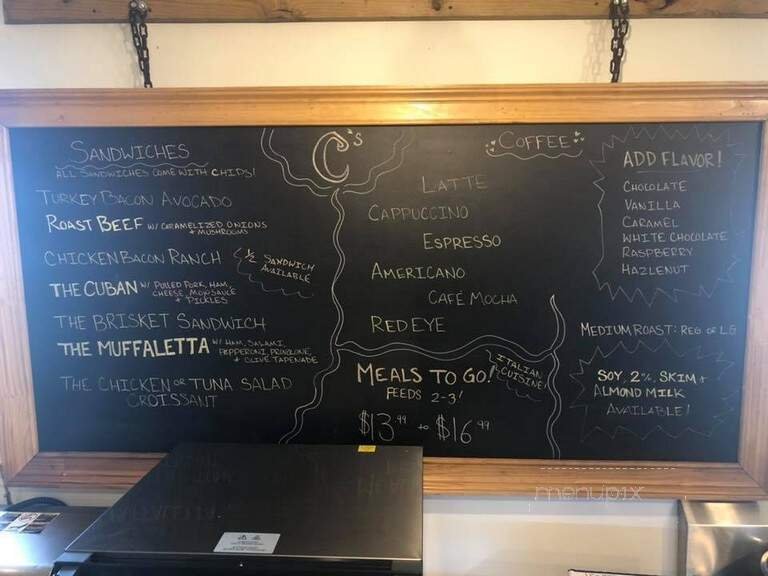 SANDWICHES
ALL SANDWICHES COME WITH CHIPS!
TURKEY BACON AVOCADO
ROAST BEEF W/ CARAMELIZED ONIONS
+ MUSHROOMS
CHICKEN BACON RANCH
1/2 SANDWICH
AVAILABLE
THE CUBAN W/ PULLED PORK, HAM,
CHEESE, MOJO SAUCE
+ PICKLES
THE BRISKET SANDWICH
THE MUFFALETTA W/ HAM, SALAMI,
PEPPERONI, PROVOLONE,
+ OLIVE TAPENADE
THE CHICKEN OR TUNA SALAD
CROISSANT
C's
COFFEE
LATTE
CAPPUCCINO
ESPRESSO
AMERICANO
CAFÉ MOCHA
RED EYE
MEALS TO GO!
FEEDS 2-3!
$13.99 to $16.99
ITALIAN
CUISINE!
ADD FLAVOR!
CHOCOLATE
VANILLA
CARAMEL
WHITE CHOCOLATE
RASPBERRY
HAZLENUT
MEDIUM ROAST: REG OR LG
SOY, 2%, SKIM +
ALMOND MILK
AVAILABLE!
menupix